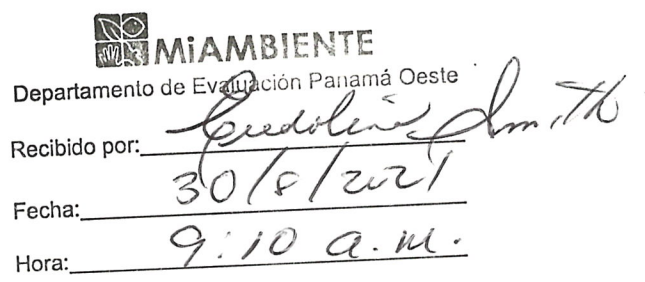 MiAMBIENTE
Departamento de Evaluación Panamá Oeste
Recibido por: Smith
Fecha: 30/8/2021
Hora: 9:10 a.m.